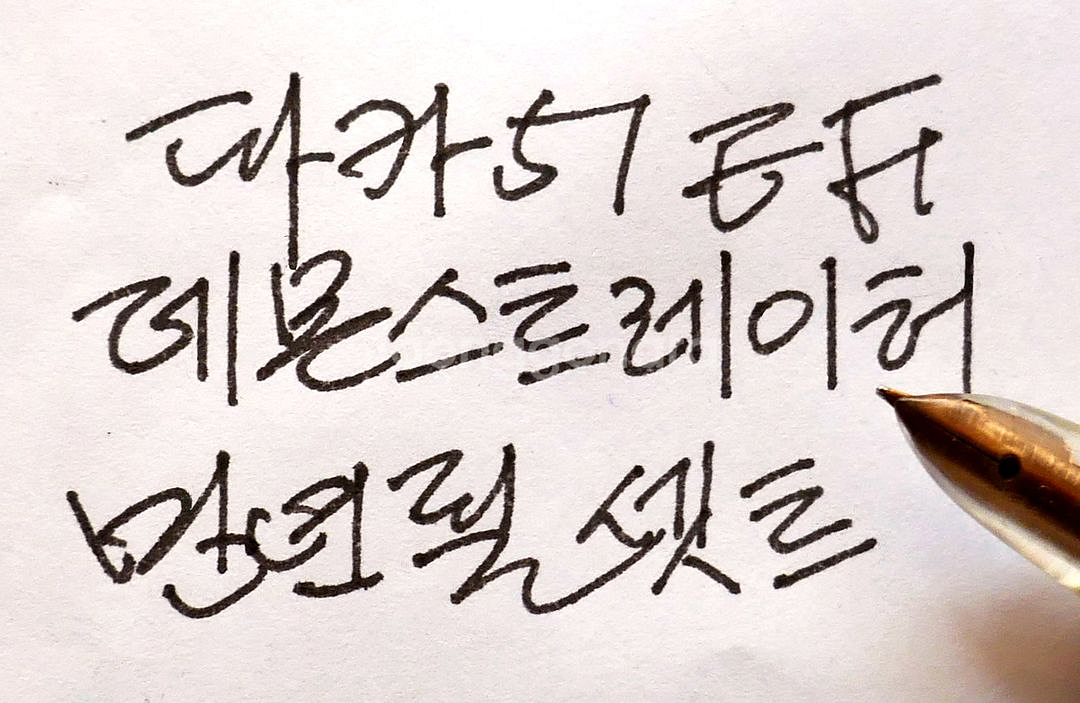 파카51 EF
데몬스트레이터
만년필 셋트